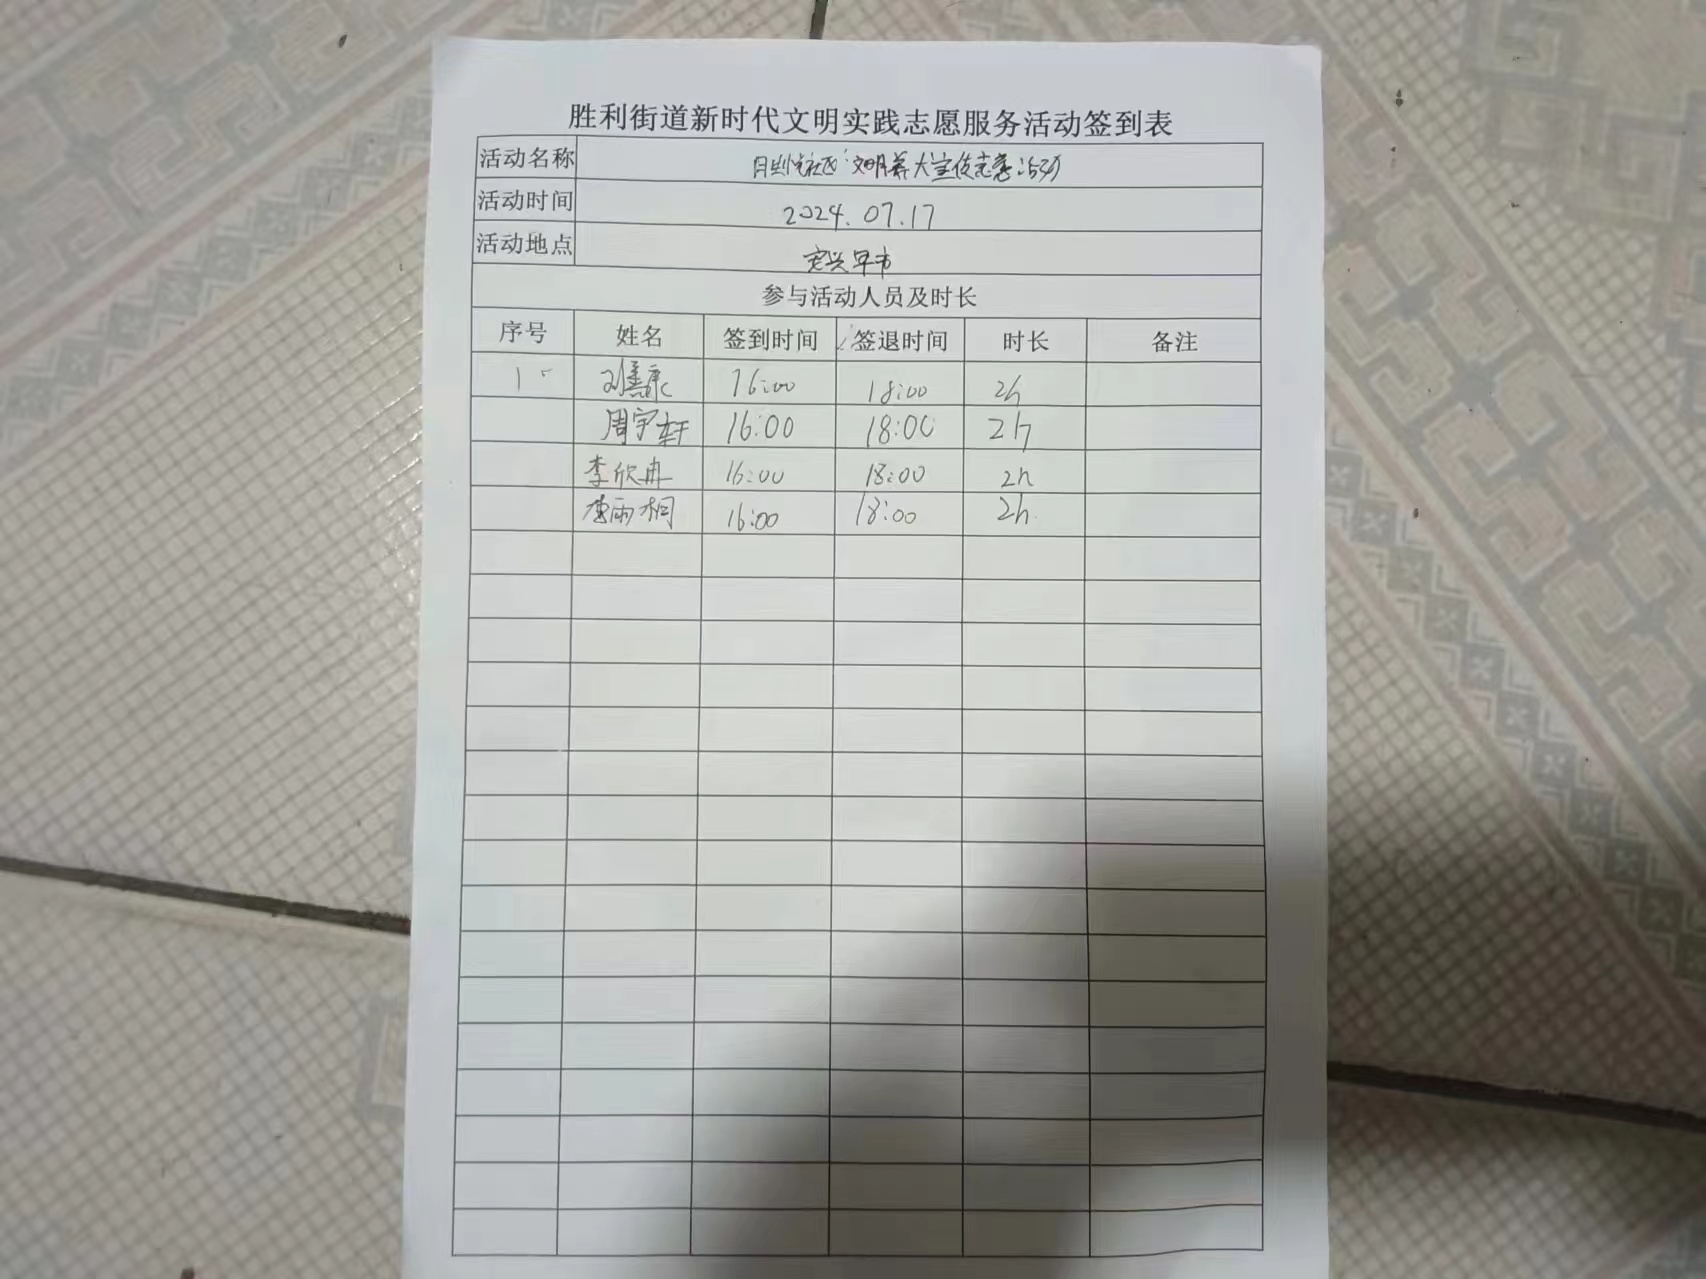 胜利街道新时代文明实践志愿服务活动签到表
活动名称 社区"文明养犬宣传志愿活动
活动时间 2024.07.17
活动地点 定兴早市
参与活动人员及时长
序号 姓名 签到时间 签退时间 时长 备注
1 刘嘉康 16:00 18:00 2h
周宇轩 16:00 18:00 2h
李欣冉 16:00 18:00 2h
李雨桐 16:00 18:00 2h